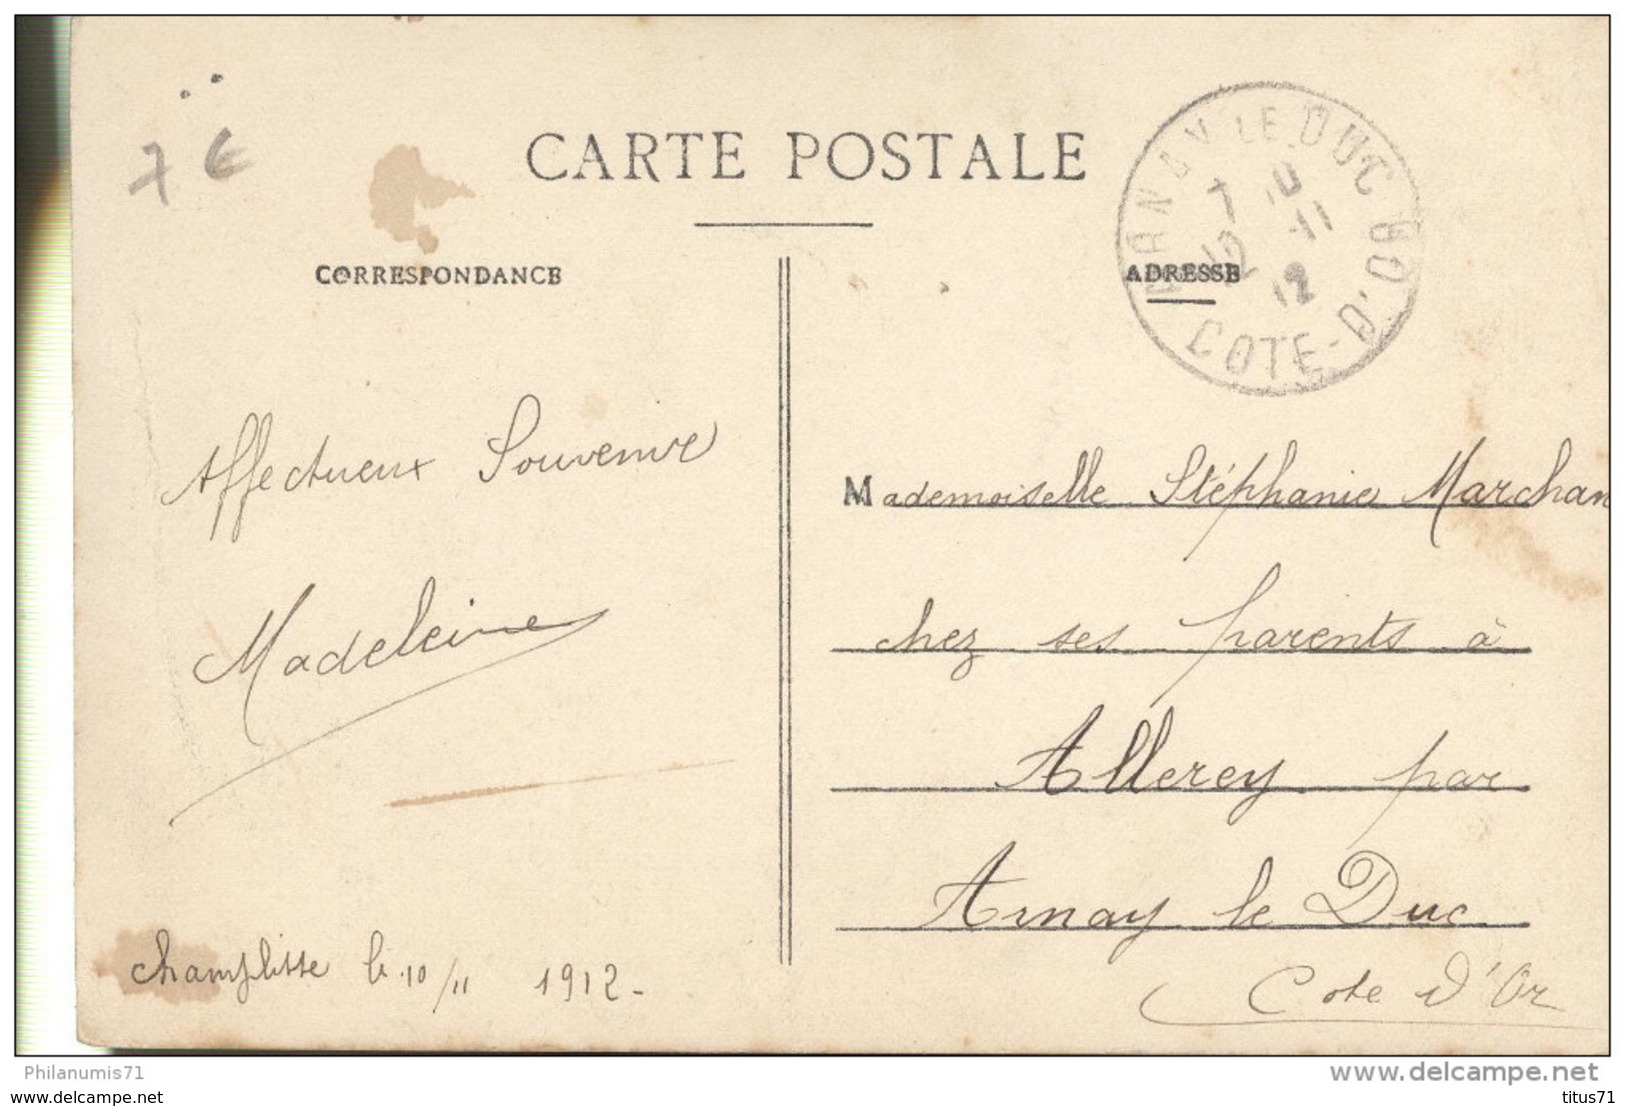 7 €
CARTE POSTALE
CORRESPONDANCE
ADRESSE
ARNAY LE DUC
7 10
12 -11
12
COTE-D'OR
Affectueux Souvenir
Madeleine
Champlitte le 10/11 1912-
Mademoiselle Stéphanie Marchan
chez ses parents à
Allerey par
Arnay le Duc
Cote d'Or
Philanumis71
www.delcampe.net
www.delcampe.net
titus71